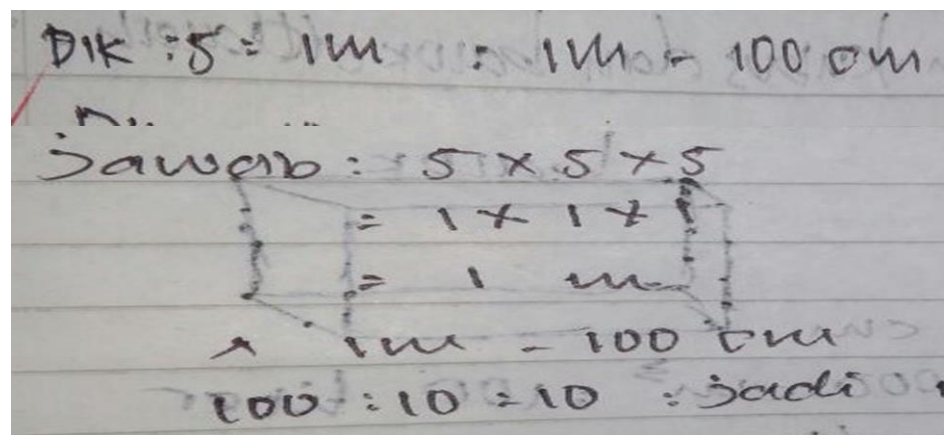 DIK : S = 1m : 1m = 100 cm
Jawab : S x S x S
= 1 x 1 x 1
= 1 m
1m = 100 cm
100 : 10 = 10 : Jadi